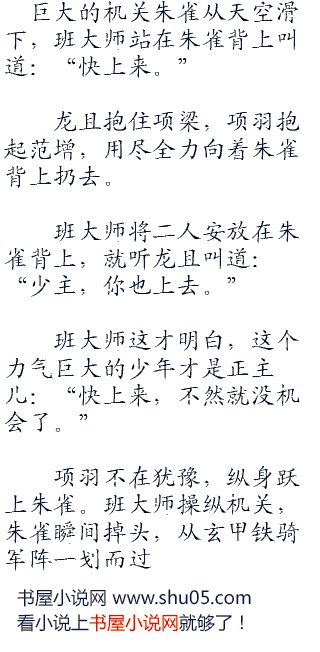 巨大的机关朱雀从天空滑
下，班大师站在朱雀背上叫
道：“快上来。”
龙且抱住项梁，项羽抱
起范增，用尽全力向着朱雀
背上扔去。
班大师将二人安放在朱
雀背上，就听龙且叫道：
“少主，你也上去。”
班大师这才明白，这个
力气巨大的少年才是正主
儿：“快上来，不然就没机
会了。”
项羽不在犹豫，纵身跃
上朱雀。班大师操纵机关，
朱雀瞬间掉头，从玄甲铁骑
军阵一划而过
书屋小说网 www.shu05.com
看小说上书屋小说网就够了！